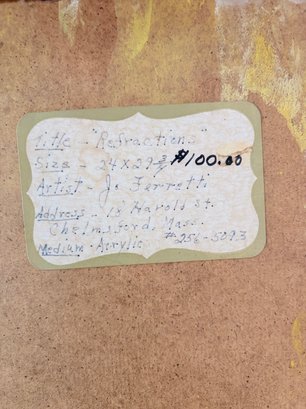 Title - "Refractions"
Size - 24 x 29 3/4 $100.00
Artist - Jo Ferretti
Address - 18 Harold St.
Chelmsford, Mass.
Medium - Acrylic #256-5093